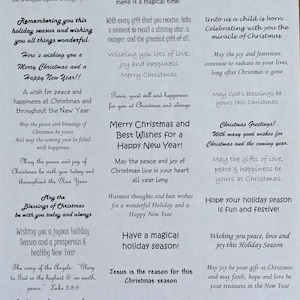 make it a magical time.
Remembering you this
holiday season and wishing
you all things wonderful.
Here's wishing you a
Merry Christmas and a
Happy New Year!!
A wish for peace and
happiness at Christmas and
throughout the New Year
May the peace and blessings of
Christmas be yours
And may the coming year be filled
with happiness
May the peace and joy of
Christmas be with you today and
throughout the New Year.
May the
Blessings of Christmas
be with you today and always
Wishing you a Joyous Holiday
Season and a prosperous &
healthy New Year
The song of the Angels: "Glory
to God in the highest & on earth,
peace." Luke 2:8-9
With every gift that you receive, take
a moment to recall a shining star, a
manger, and the greatest gift of all.
Wishing you lots of love,
joy and happiness
Merry Christmas
Peace, good will and happiness
for you at Christmas and always
Merry Christmas and
Best Wishes for a
Happy New Year!
May the peace and joy of
Christmas live in your heart
all year long
Warmest thoughts and best wishes
for a wonderful Holiday and a
Happy New Year
Have a magical
holiday season!
Jesus is the reason for this
Christmas season
Unto us a child is born.
Celebrating with you the
miracle of Christmas
May the joy and festivities
continue to radiate in your lives,
long after Christmas is gone
May God's blessings be
yours this Christmas
Christmas Greetings!
With many good wishes for
Christmas and the coming year.
May the gifts of love,
peace & happiness be
yours at Christmas
Hope your holiday season
is fun and festive!
Wishing you peace, love and
joy this Holiday Season
May joy be your gift at Christmas
and may faith, hope and love be
your treasures in the New Year.